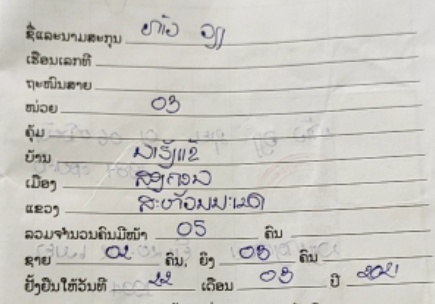 ຊື່ແລະນາມສະກຸນ ທ້າວ
ເຮືອນເລກທີ
ຖະໜົນສາຍ
ໜ່ວຍ 03
ຄຸ້ມ
ບ້ານ
ເມືອງ ສອງຄອນ
ແຂວງ ສະຫວັນນະເຂດ
ລວມຈຳນວນຄົນມີໜ້າ 05 ຄົນ
ຊາຍ 02 ຄົນ, ຍິງ 03 ຄົນ
ຢັ້ງຢືນໃຫ້ວັນທີ 22 ເດືອນ 03 ປີ 2021